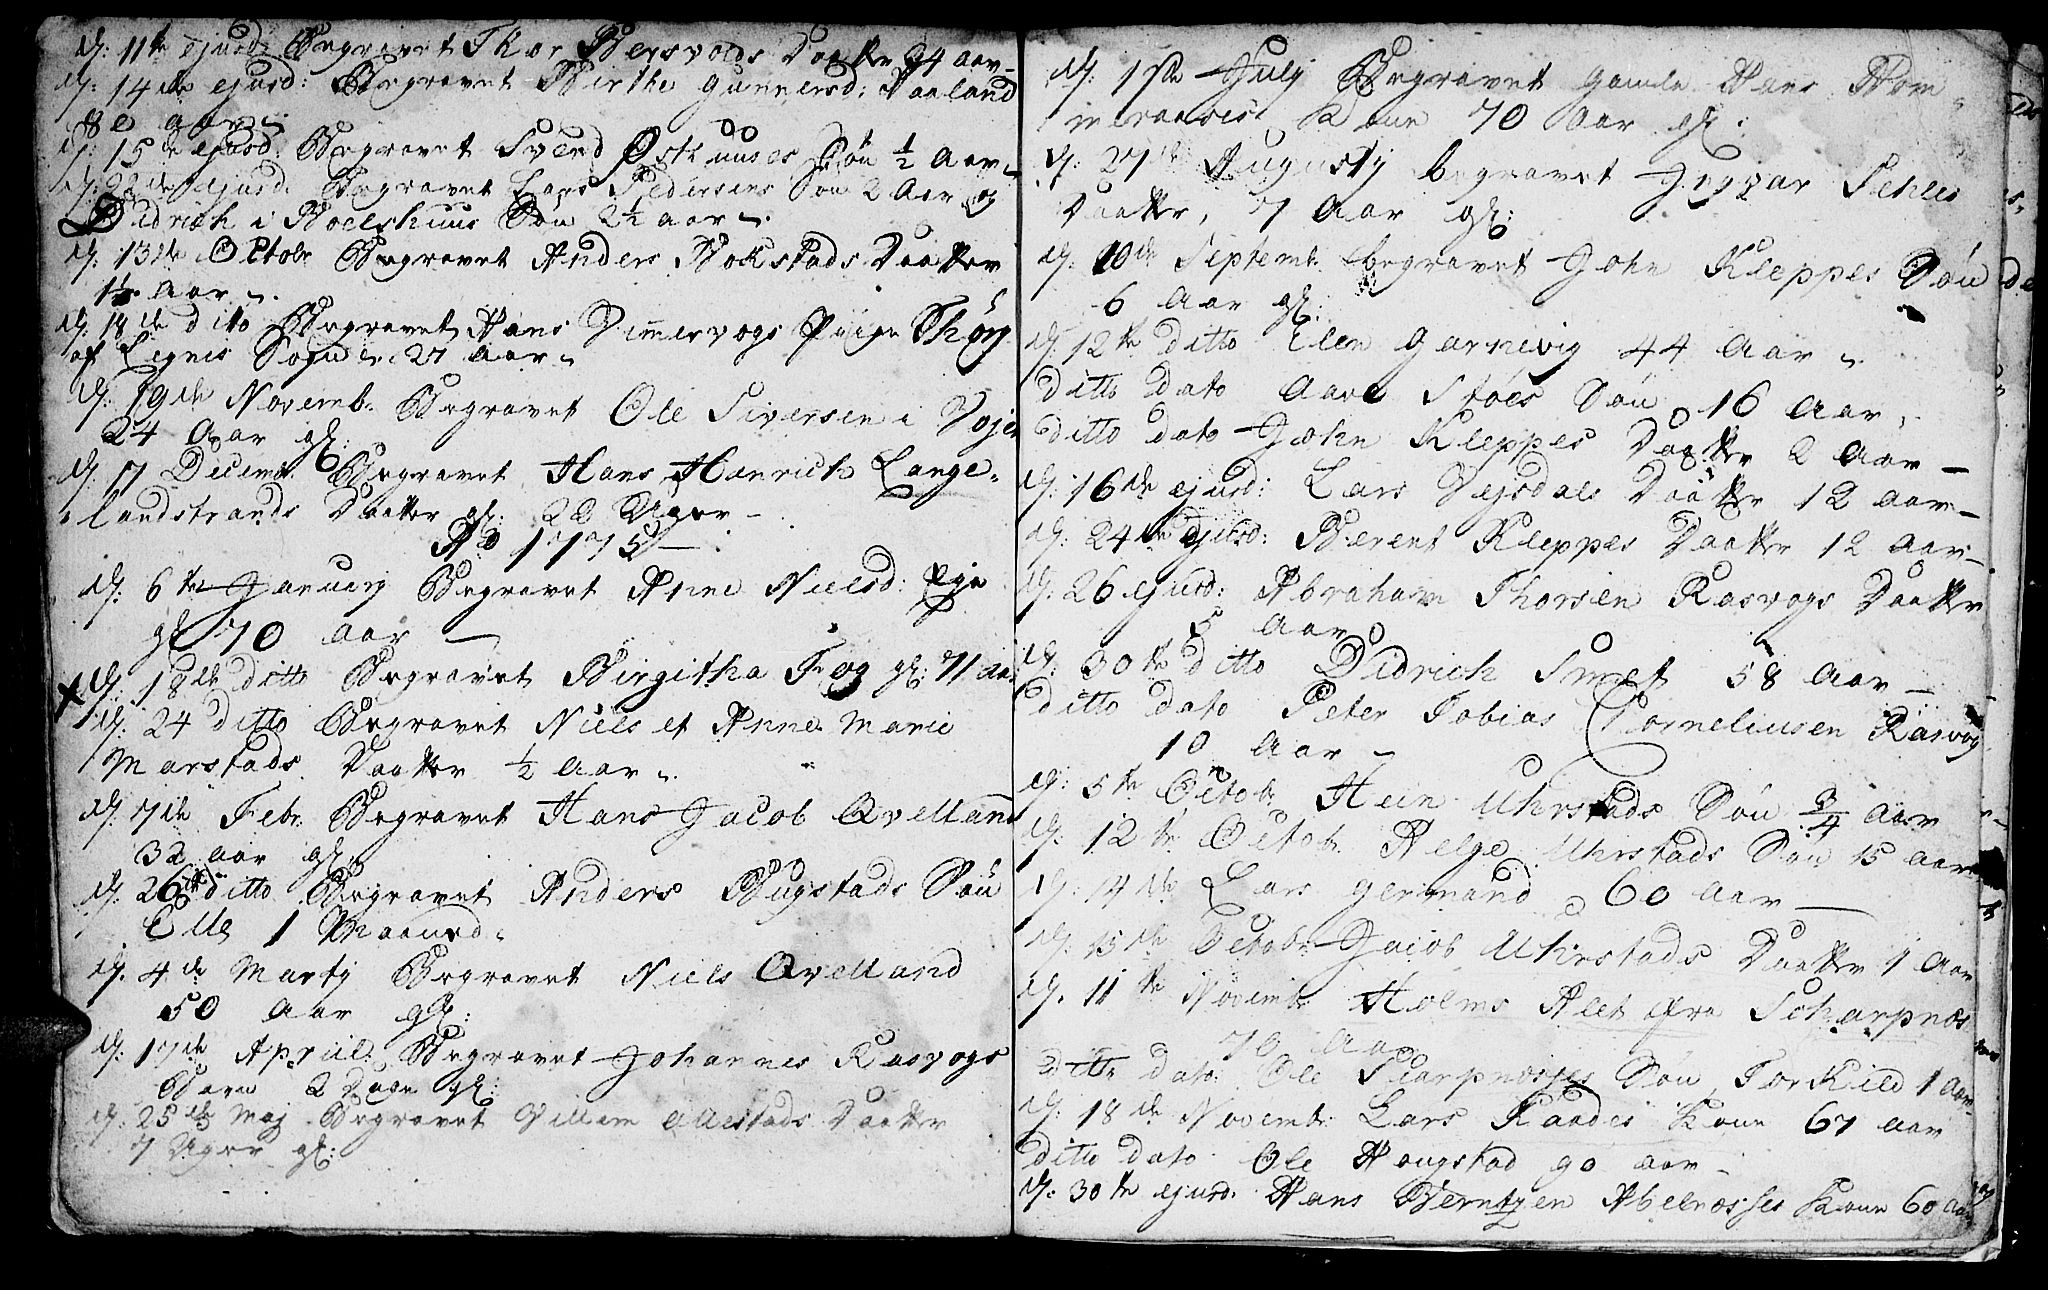 d: 11te ejusd: Begravet Thor Bersvolds Daatter 24 aar
d: 14de ejusd: Begravet Birthe Gunnersd: Haaland
80 aar
d: 15de ejusd: Begravet Svend Østhuuses Søn ½ aar
d: 22de ejusd: Begravet Lars Pedersens Søn 2 Aar og
Didrich i Boelshuus Søn 2½ aar
d: 13de Octobr Begravet Anders Bokstads Daatter
1½ Aar
d: 18de dito Begravet Hans Pige
af Sogn 27 aar
d: 19de Novemb: Begravet Ole Siversen i
24 Aar gl:
d: 17 Decemb: Begravet Hans Hanrich Lange-
landstrands Daatter gl: 22 Uger
Ao 1775
d: 6te January Begravet Anne Nielsd: Eje
gl 70 aar
d: 18de ditto Begravet Birgitha Fog gl: 71 aar
d: 24 ditto Begravet Niels et Anne Marie
Marstads Daatter ½ aar
d: 7de Febr: Begravet Hans Jacob Qvelland
32 aar gl:
d: 26de ditto Begravet Anders Bugstads Søn
1 Maaned
d: 4de Martj Begravet Niels Qvelland
50 aar gl:
d: 17de April: Begravet Johannes Rasvogs
Barn 2 Dage gl:
d: 25de Maj Begravet Villem Ollestads Daatter
7 Uger gl:
d: 17de Julj Begravet gamle Hans Rom-
Kone 70 Aar gl:
d: 27de Augustj begravet
Daatter, 7 Aar gl:
d: 10de Septemb: begravet John Kleppes Søn
6 Aar gl:
d: 12te ditto Elen Garnevig 44 Aar
ditto dato Aave Støes Søn 16 Aar,
ditto dato John Kleppes Daatter 2 Aar
d: 16de ejusd: Lars Daatter 12 aar
d: 24de Ejusd: Berent Kleppes Daatter 12 aar
d: 26 ejusd: Abraham Thorsen Rasvogs Daatter
5 aar
d: 30te ditto Didrich Smet 58 Aar
ditto dato Peter Tobias Corneliusen Rasvog
10 Aar
d: 5te Octob: Hein Uhrstads Søn ¾ aar
d: 12te Octob: Helge Uhrstads Søn 15 aar
d: 14de Lars Germand 60 Aar
d: 15de Octob: Jacob Uhrstads Daatter 1 Aar
d: 11te Novemb: Holms Alet fra Scharpnes
70 Aar
ditto dato: Ole Scarpnesses Søn Torkild 1 Aar
d: 18de Novemb: Lars Raades Kone 67 aar
ditto dato Ole Hougstad 90 aar
d: 30te ejusd: Hans Berntzen Abelnesses Kone 60 Aar